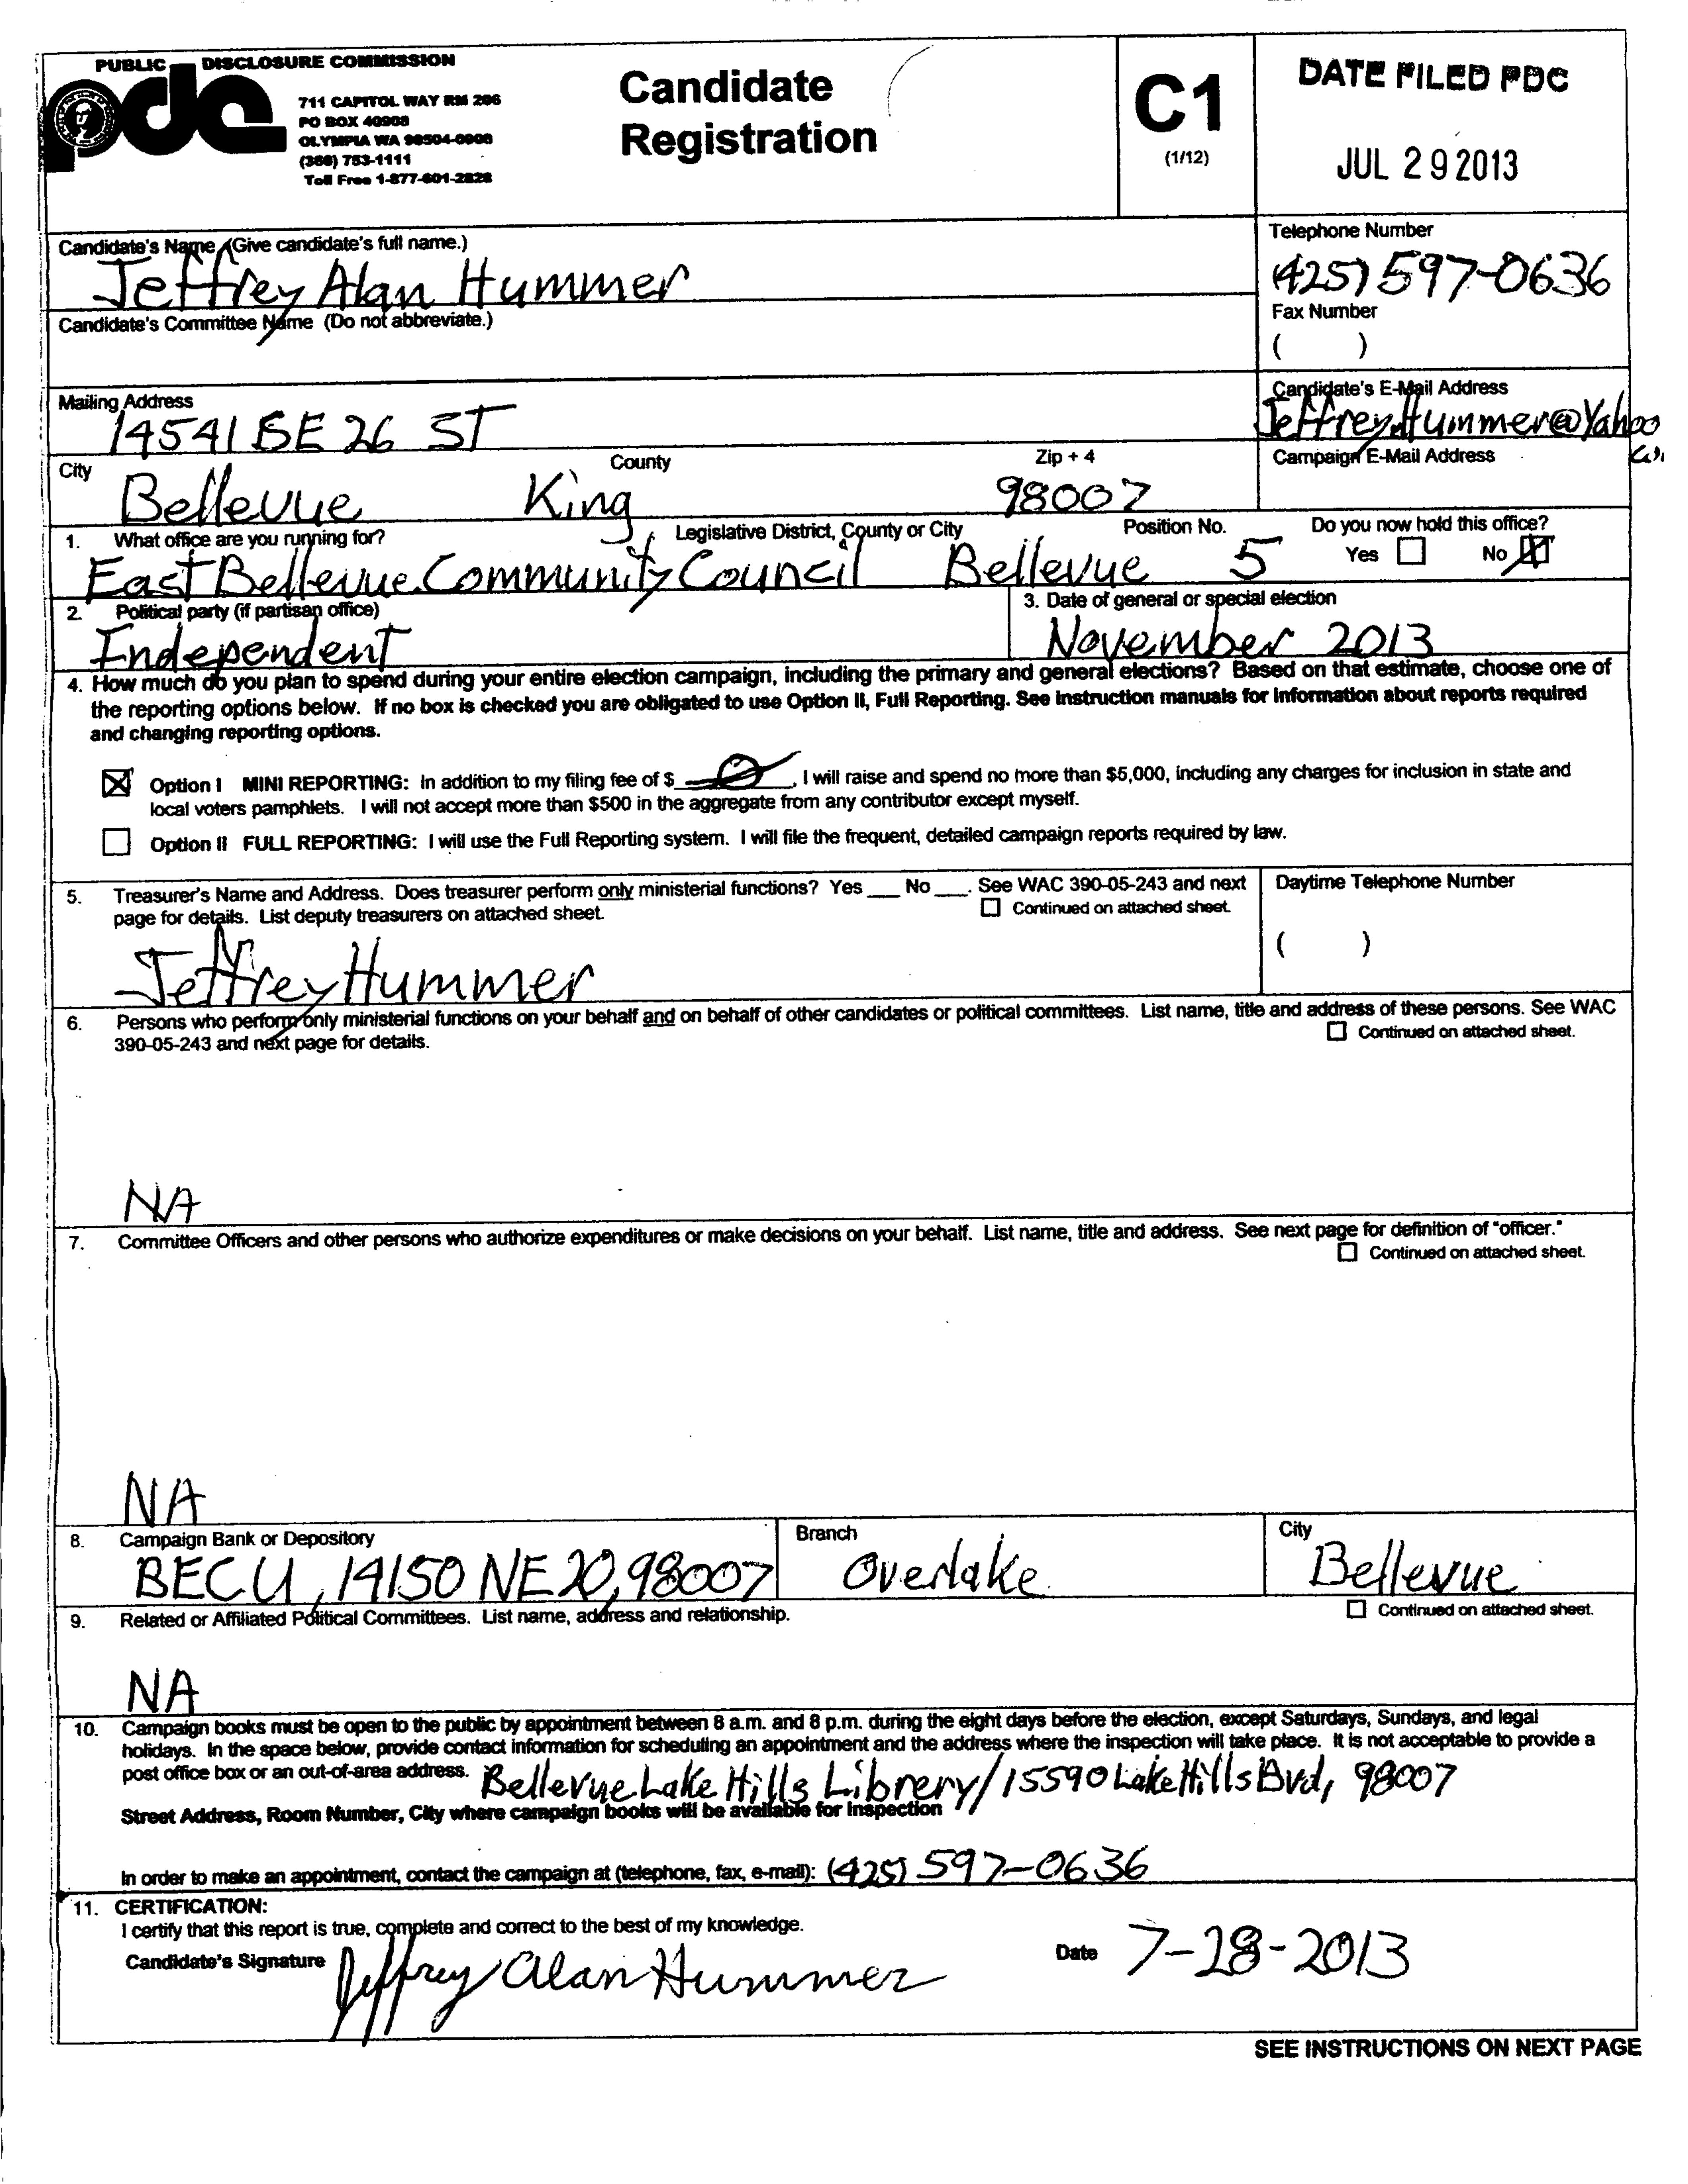 PUBLIC DISCLOSURE COMMISSION
pdc
711 CAPITOL WAY RM 206
PO BOX 40908
OLYMPIA WA 98504-0908
(360) 753-1111
Toll Free 1-877-601-2828
Candidate
Registration
C1
(1/12)
DATE FILED PDC
JUL 29 2013
Candidate's Name (Give candidate's full name.)
Jeffrey Alan Hummer
Telephone Number
(425) 597-0636
Candidate's Committee Name (Do not abbreviate.)
Fax Number
( )
Mailing Address
14541 SE 26 ST
Candidate's E-Mail Address
JeffreyHummer@Yahoo
City County Zip + 4
Bellevue King 98007
Campaign E-Mail Address
1. What office are you running for? Legislative District, County or City Position No. Do you now hold this office?
East Bellevue Community Council Bellevue 5 Yes No X
2. Political party (if partisan office)
Independent
3. Date of general or special election
November 2013
4. How much do you plan to spend during your entire election campaign, including the primary and general elections? Based on that estimate, choose one of
the reporting options below. If no box is checked you are obligated to use Option II, Full Reporting. See instruction manuals for information about reports required
and changing reporting options.
X Option I MINI REPORTING: In addition to my filing fee of $ 0, I will raise and spend no more than $5,000, including any charges for inclusion in state and
local voters pamphlets. I will not accept more than $500 in the aggregate from any contributor except myself.
Option II FULL REPORTING: I will use the Full Reporting system. I will file the frequent, detailed campaign reports required by law.
5. Treasurer's Name and Address. Does treasurer perform only ministerial functions? Yes ___ No ___. See WAC 390-05-243 and next
page for details. List deputy treasurers on attached sheet. Continued on attached sheet.
Jeffrey Hummer
Daytime Telephone Number
( )
6. Persons who perform only ministerial functions on your behalf and on behalf of other candidates or political committees. List name, title and address of these persons. See WAC
390-05-243 and next page for details. Continued on attached sheet.
NA
7. Committee Officers and other persons who authorize expenditures or make decisions on your behalf. List name, title and address. See next page for definition of "officer."
Continued on attached sheet.
NA
8. Campaign Bank or Depository Branch City
BECU, 14150 NE 20, 98007 Overlake Bellevue
9. Related or Affiliated Political Committees. List name, address and relationship. Continued on attached sheet.
NA
10. Campaign books must be open to the public by appointment between 8 a.m. and 8 p.m. during the eight days before the election, except Saturdays, Sundays, and legal
holidays. In the space below, provide contact information for scheduling an appointment and the address where the inspection will take place. It is not acceptable to provide a
post office box or an out-of-area address. Bellevue Lake Hills Librery/15590 Lake Hills Bvd, 98007
Street Address, Room Number, City where campaign books will be available for inspection
In order to make an appointment, contact the campaign at (telephone, fax, e-mail): (425) 597-0636
11. CERTIFICATION:
I certify that this report is true, complete and correct to the best of my knowledge.
Candidate's Signature Jeffrey Alan Hummer Date 7-28-2013
SEE INSTRUCTIONS ON NEXT PAGE